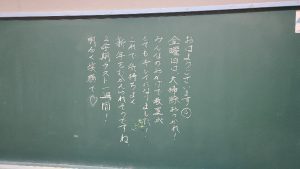 おはようございます☺
金曜日は大掃除おつかれ!
みんなのおかげで教室が
とてもキレイになりました!
これで気持ちよく
新年をむかえられそうですね
2学期ラスト一週間!
明るく笑顔で♡